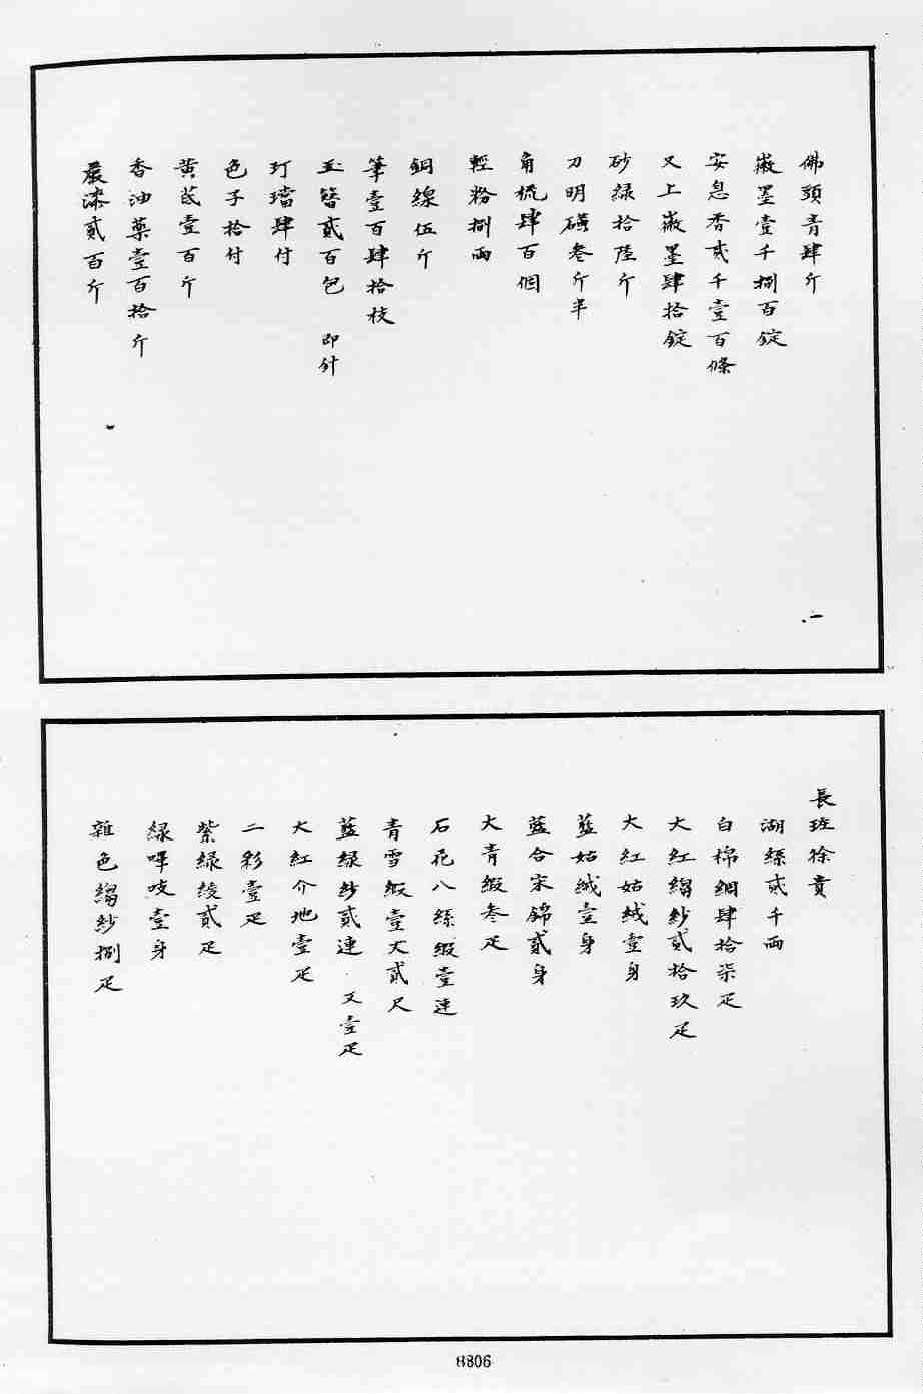 佛頭青肆斤
嶶墨壹千捌百錠
安息香貳千壹百條
又上嶶墨肆拾錠
砂緑拾陸斤
刀明礒叁斤半
角梳肆百個
輕粉捌兩
銅線伍斤
筆壹百肆拾枝
玉簪貳百包 即針
玎璫肆付
色子拾付
黄茋壹百斤
香油藥壹百拾斤
嚴漆貳百斤
長班徐貴
湖絲貳千兩
白棉綢肆拾柒疋
大紅縐紗貳拾玖疋
大紅姑絨壹身
藍姑絨壹身
藍合宋錦貳身
大青緞叁疋
石花八絲緞壹連
青雪緞壹丈貳尺
藍緑紗貳連 又壹疋
大紅介地壹疋
二彩壹疋
紫緑綾貳疋
緑嗶吱壹身
雜色縐紗捌疋
8806